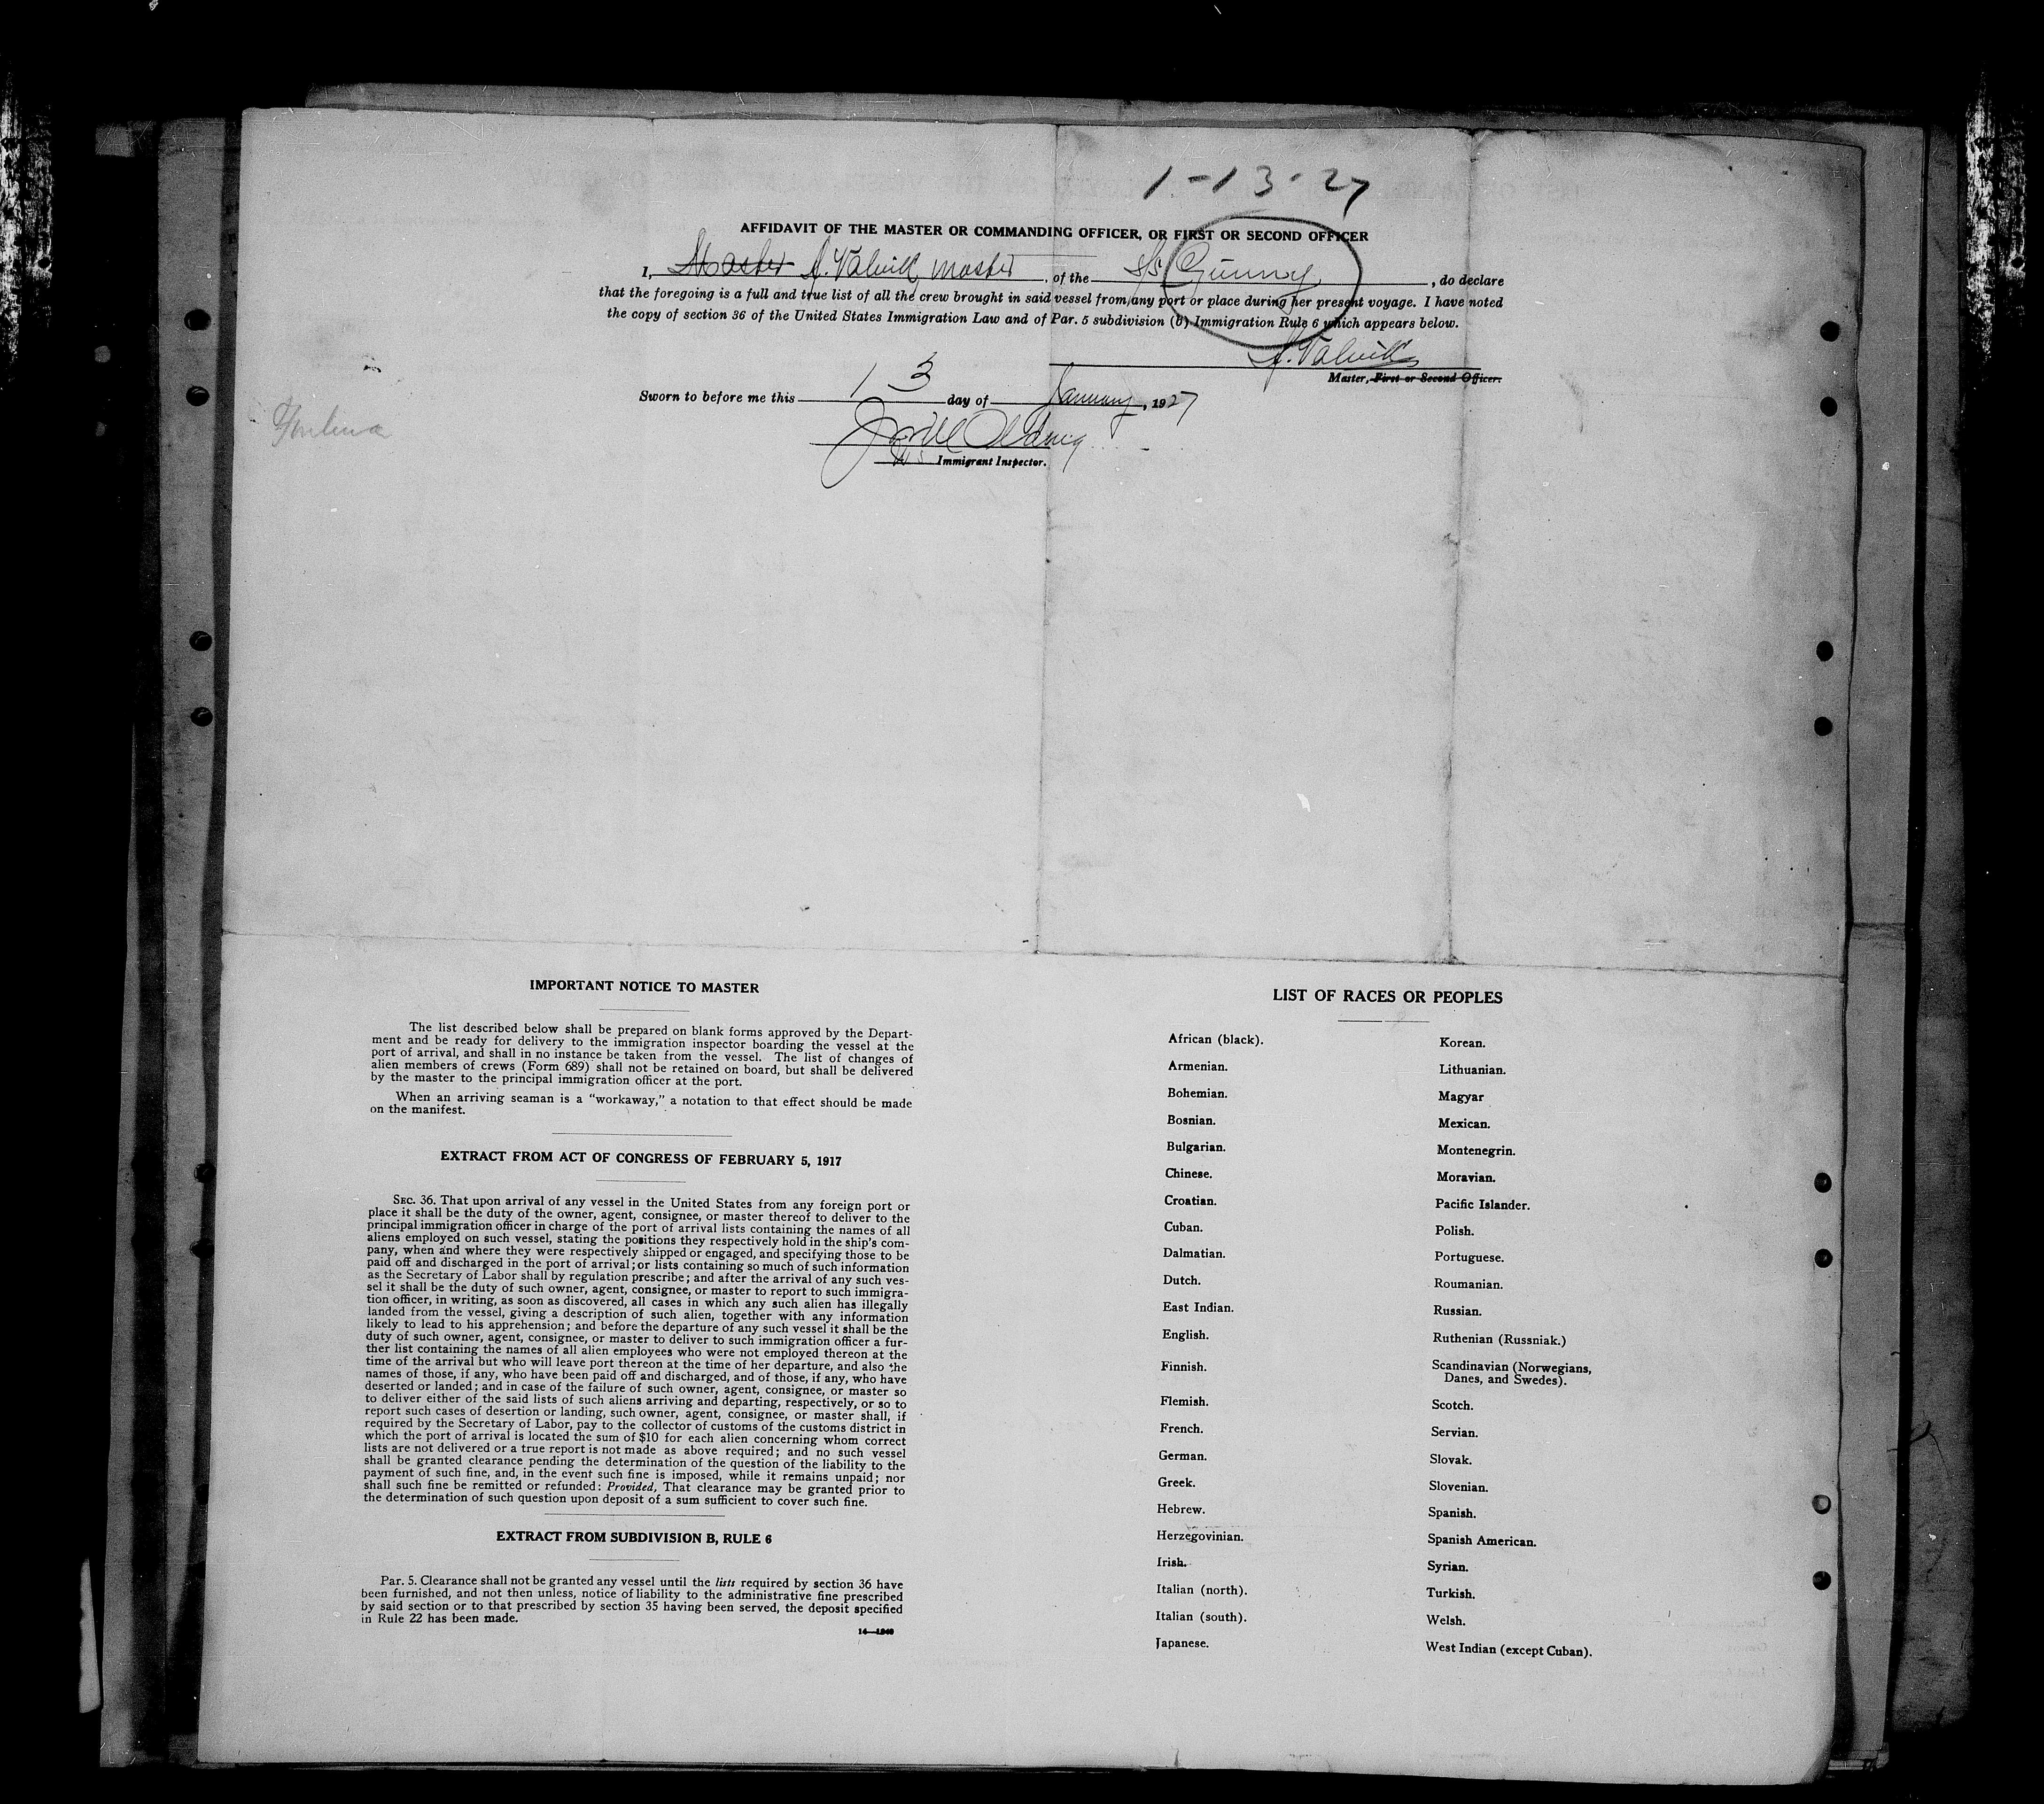 1-13-27
AFFIDAVIT OF THE MASTER OR COMMANDING OFFICER, OR FIRST OR SECOND OFFICER
I, Master A. master, of the S/S Gunny, do declare
that the foregoing is a full and true list of all the crew brought in said vessel from any port or place during her present voyage. I have noted
the copy of section 36 of the United States Immigration Law and of Par. 5 subdivision (b) Immigration Rule 6 which appears below.
A.
Master, First or Second Officer.
Sworn to before me this 13 day of January, 1927
Immigrant Inspector.
IMPORTANT NOTICE TO MASTER
The list described below shall be prepared on blank forms approved by the Depart-
ment and be ready for delivery to the immigration inspector boarding the vessel at the
port of arrival, and shall in no instance be taken from the vessel. The list of changes of
alien members of crews (Form 689) shall not be retained on board, but shall be delivered
by the master to the principal immigration officer at the port.
When an arriving seaman is a “workaway,” a notation to that effect should be made
on the manifest.
EXTRACT FROM ACT OF CONGRESS OF FEBRUARY 5, 1917
SEC. 36. That upon arrival of any vessel in the United States from any foreign port or
place it shall be the duty of the owner, agent, consignee, or master thereof to deliver to the
principal immigration officer in charge of the port of arrival lists containing the names of all
aliens employed on such vessel, stating the positions they respectively hold in the ship's com-
pany, when and where they were respectively shipped or engaged, and specifying those to be
paid off and discharged in the port of arrival; or lists containing so much of such information
as the Secretary of Labor shall by regulation prescribe; and after the arrival of any such ves-
sel it shall be the duty of such owner, agent, consignee, or master to report to such immigra-
tion officer, in writing, as soon as discovered, all cases in which any such alien has illegally
landed from the vessel, giving a description of such alien, together with any information
likely to lead to his apprehension; and before the departure of any such vessel it shall be the
duty of such owner, agent, consignee, or master to deliver to such immigration officer a fur-
ther list containing the names of all alien employees who were not employed thereon at the
time of the arrival but who will leave port thereon at the time of her departure, and also the
names of those, if any, who have been paid off and discharged, and of those, if any, who have
deserted or landed; and in case of the failure of such owner, agent, consignee, or master so
to deliver either of the said lists of such aliens arriving and departing, respectively, or so to
report such cases of desertion or landing, such owner, agent, consignee, or master shall, if
required by the Secretary of Labor, pay to the collector of customs of the customs district in
which the port of arrival is located the sum of $10 for each alien concerning whom correct
lists are not delivered or a true report is not made as above required; and no such vessel
shall be granted clearance pending the determination of the question of the liability to the
payment of such fine, and, in the event such fine is imposed, while it remains unpaid; nor
shall such fine be remitted or refunded: Provided, That clearance may be granted prior to
the determination of such question upon deposit of a sum sufficient to cover such fine.
EXTRACT FROM SUBDIVISION B, RULE 6
Par. 5. Clearance shall not be granted any vessel until the lists required by section 36 have
been furnished, and not then unless, notice of liability to the administrative fine prescribed
by said section or to that prescribed by section 35 having been served, the deposit specified
in Rule 22 has been made.
LIST OF RACES OR PEOPLES
African (black).
Armenian.
Bohemian.
Bosnian.
Bulgarian.
Chinese.
Croatian.
Cuban.
Dalmatian.
Dutch.
East Indian.
English.
Finnish.
Flemish.
French.
German.
Greek.
Hebrew.
Herzegovinian.
Irish.
Italian (north).
Italian (south).
Japanese.
Korean.
Lithuanian.
Magyar
Mexican.
Montenegrin.
Moravian.
Pacific Islander.
Polish.
Portuguese.
Roumanian.
Russian.
Ruthenian (Russniak.)
Scandinavian (Norwegians,
Danes, and Swedes).
Scotch.
Servian.
Slovak.
Slovenian.
Spanish.
Spanish American.
Syrian.
Turkish.
Welsh.
West Indian (except Cuban).